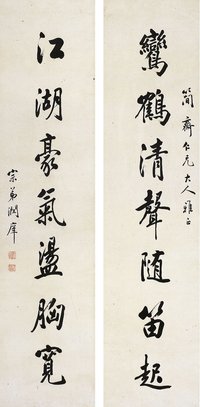 鸞鶴清聲随笛起
簡齋仁兄大人雅正
江湖豪氣盪胸寬
宗弟潤庠